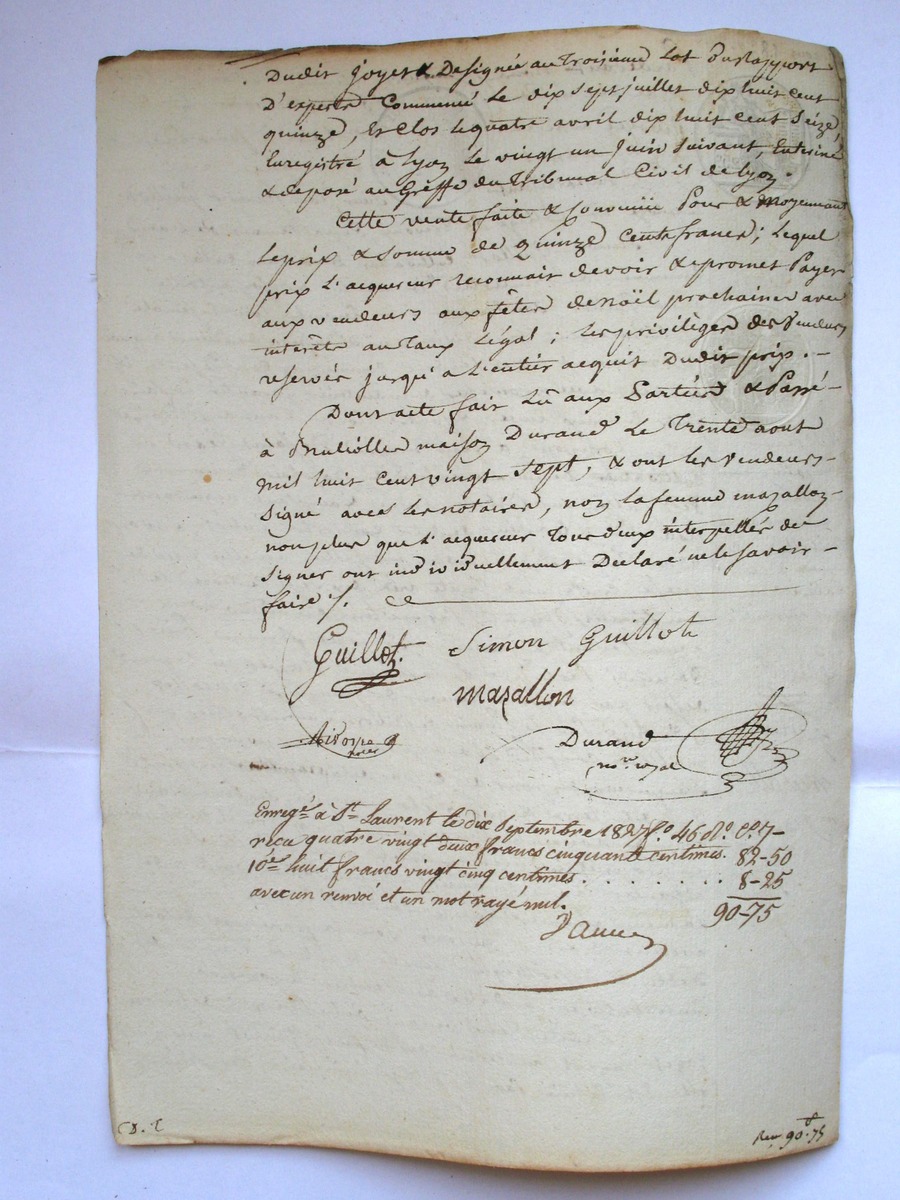 Dudit Joyet & Designée au Troisieme Lot Du Rapport
D'experts Commencé Le dix sept juillet dix huit cent
quinze, Et Clos Le quatre avril dix huit cent seize,
Enregistré à Lyon Le vingt un Juin suivant, Enteriné
& deposé au Greffe du Tribunal Civil de Lyon.
Cette vente faite & Convenüe Pour & Moyennant
Le prix & somme de quinze Cents francs; Lequel
prix L'acquereur reconnait devoir & promet Payer
aux vendeurs aux fêtes de noël prochaines avec
intérêts au Taux Légal; Les privilèges des Vendeurs
reservés jusqu'a L'entier acquit Dudit prix. -
Dont acte fait Lû aux Parties & Passé -
à Brulliolles maison Durand Le Trente aout
Mil huit Cent vingt sept, & ont les Vendeurs -
signé avec les notaires, non la femme mazallon -
non plus que L'acquereur Tous deux interpellés de
signer ont individuellement Declaré ne le savoir -
faire ./.
Guillot. Simon Guillot
mazallon
Durand
no.re royal
Enreg.é à S.t Laurent le dix Septembre 1827 f.o 46 R.o C.7 -
reçu quatre vingt deux francs cinquante centimes. 82-50
10.e huit francs vingt cinq centimes . . . . . . . . 8-25
avec un renvoi et un mot rayé nul. 90-75
90-75